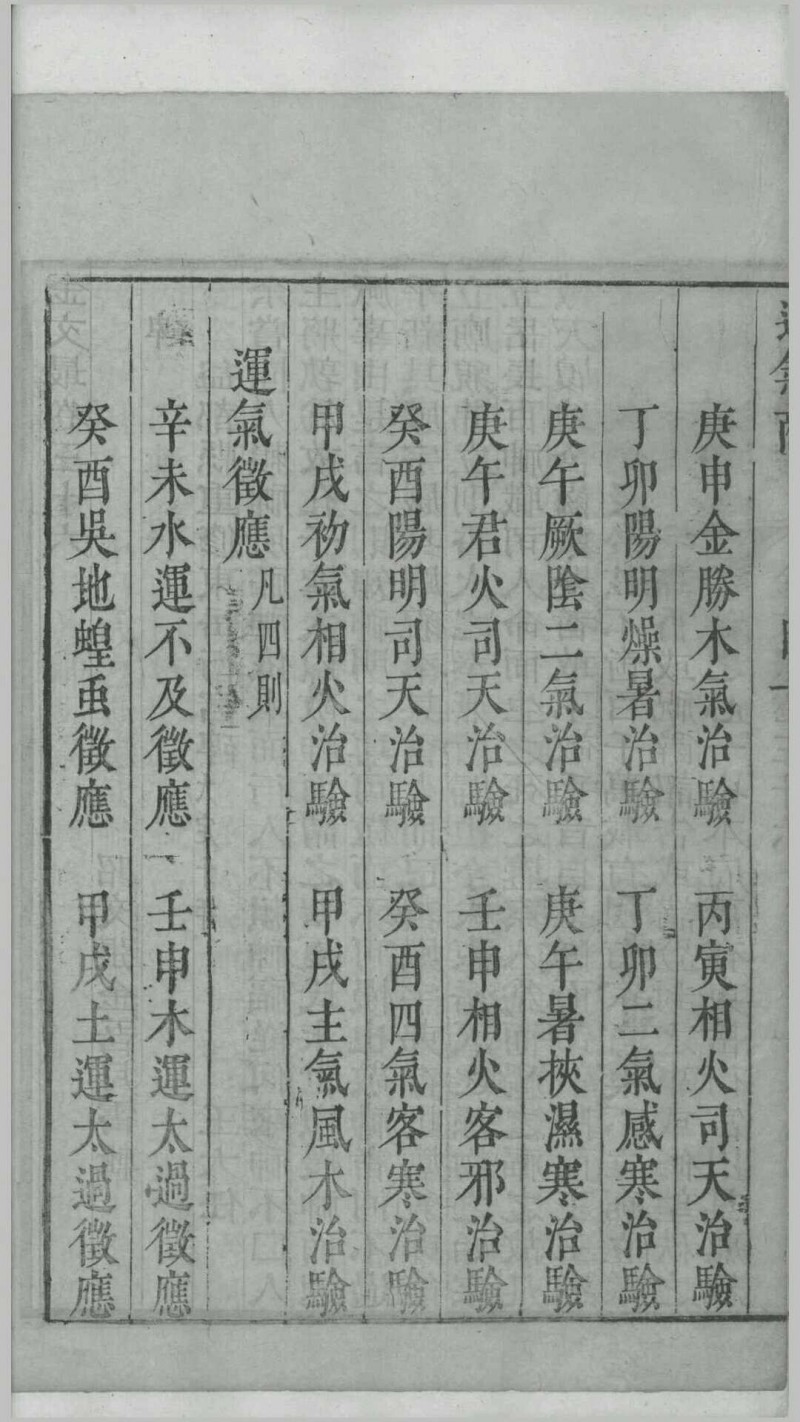 庚申金勝木氣治驗　丙寅相火司天治驗
丁卯陽明燥暑治驗　丁卯二氣感寒治驗
庚午厥陰二氣治驗　庚午暑挾濕寒治驗
庚午君火司天治驗　壬申相火客邪治驗
癸酉陽明司天治驗　癸酉四氣客寒治驗
甲戌初氣相火治驗　甲戌主氣風木治驗
運氣徵應凡四則
辛未水運不及徵應　壬申木運太過徵應
癸酉吳地蝗虫徵應　甲戌土運太過徵應